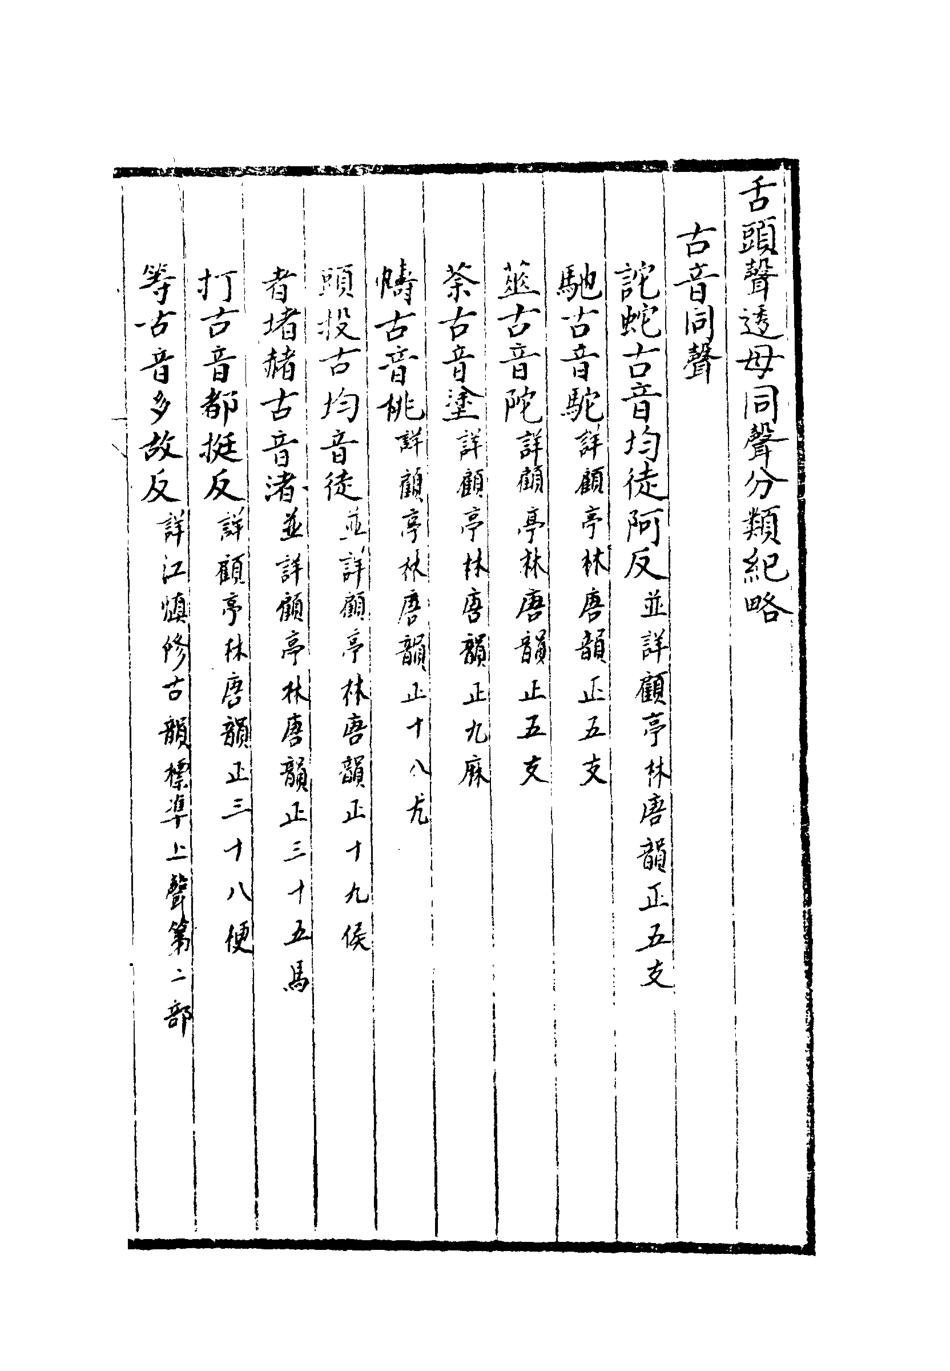 舌頭聲透母同聲分類紀略
古音同聲
詑蛇古音均徒阿反並詳顧亭林唐韻正五支
馳古音駝詳顧亭林唐韻正五支
古音陀詳顧亭林唐韻正五支
荼古音塗詳顧亭林唐韻正九麻
幬古音桃詳顧亭林唐韻正十八尤
頭投古均音徒並詳顧亭林唐韻正十九侯
者堵赭古音渚並詳顧亭林唐韻正三十五馬
打古音都挺反詳顧亭林唐韻正三十八梗
等古音多故反詳江慎修古韻標準上聲第二部